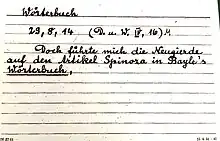 Wörterbuch
29, 8, 14 (D. u. W. IV, 16) M
Doch führte mich die Neugierde
auf den Artikel Spinoza in Bayle's
Wörterbuch,